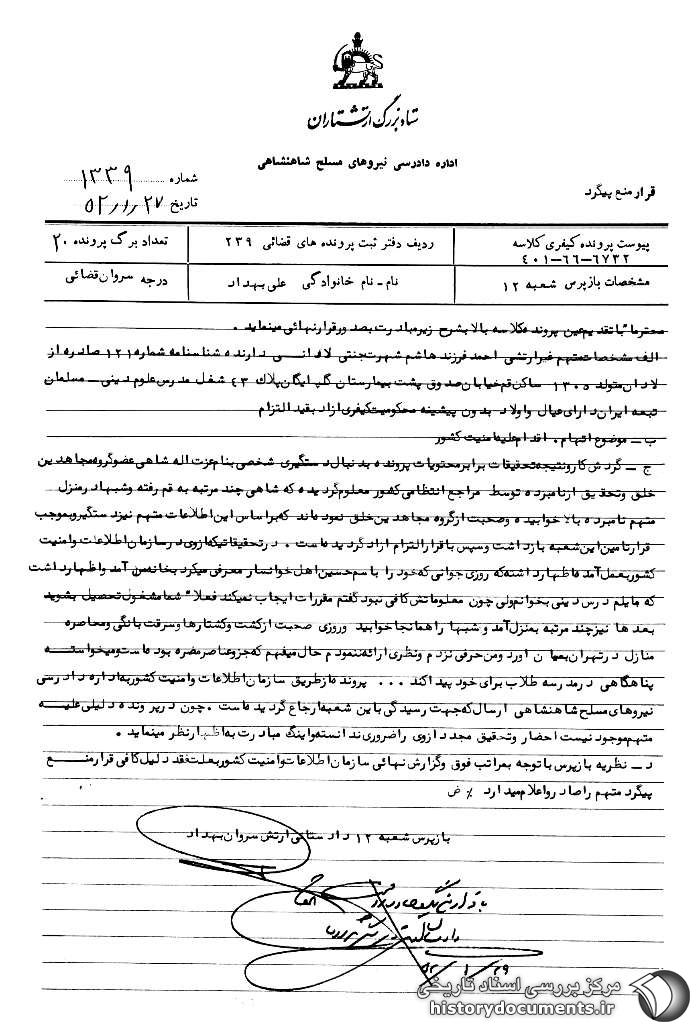 ستاد بزرگ ارتشتاران
اداره دادرسی نیروهای مسلح شاهنشاهی
شماره ۱۳۳۹
تاریخ ۵۲/۱/۲۷
قرار منع پیگرد
پیوست پرونده کیفری کلاسه ۴۰۱-۶۶-۶۷۳۲
ردیف دفتر ثبت پرونده های قضائی ۲۳۹
تعداد برگ پرونده ۲۰
مشخصات بازپرس شعبه ۱۲
نام - نام خانوادگی علی بهداد
درجه سروان قضائی
محترما" با تقدیم عین پرونده کلاسه بالا بشرح زیر مبادرت بصدور قرار نهائی مینماید .
الف مشخصات متهم غیر ارتشی احمد فرزند هاشم شهرت جنتی لادانی دارنده شناسنامه شماره ۱۲۱ صادره از
لادان متولد ۱۳۰۵ ساکن قم خیابان صدوق پشت بیمارستان گلپایگان پلاك ۴۳ شغل مدرس علوم دینی - مسلمان
تبعه ایران دارای عیال و اولاد بدون پیشینه محکومیت کیفری ازاد بقید التزام
ب - موضوع اتهام . اقدام علیه امنیت کشور
ج - گردش کار و نتیجه تحقیقات برابر محتویات پرونده بدنبال دستگیری شخصی بنام عزت اله شاهی عضو گروه مجاهدین
خلق و تحقیق از نامبرده توسط مراجع انتظامی کشور معلوم گردیده که شاهی چند مرتبه به قم رفته و شبها در منزل
متهم نامبرده بالا خوابیده و صحبت از گروه مجاهدین خلق نموده اند که بر اساس این اطلاعات متهم نیز دستگیر و بموجب
قرار تامین این شعبه بازداشت و سپس با قرار التزام ازاد گردیده است . در تحقیقاتیکه از وی در سازمان اطلاعات و امنیت
کشور بعمل آمده اظهار داشته که روزی جوانی که خود را باسم حسین اهل خوانسار معرفی میکرد بخانه من آمد و اظهار داشت
که مایلم درس دینی بخوانم ولی چون معلوماتش کافی نبود گفتم مقررات ایجاب نمیکند فعلا" شما مشغول تحصیل بشوید
بعدها نیز چند مرتبه بمنزل آمد و شبها را همانجا خوابید و روزی صحبت از کشت و کشتارها و سرقت بانگی و محاصره
منازل در تهران بمیان اورد و من حرفی نزدم و نظری ارائه ننمودم حال میفهم که جزو عناصر مضره بوده است و میخواسته
پناهگاهی در مدرسه طلاب برای خود پیدا کند ... پرونده از طریق سازمان اطلاعات و امنیت کشور به اداره دادرسی
نیروهای مسلح شاهنشاهی ارسال که جهت رسیدگی باین شعبه ارجاع گردیده است . چون در پرونده دلیلی علیه
متهم موجود نیست احضار و تحقیق مجدد از وی را ضروری ندانسته و اینگ مبادرت به اظهار نظر مینماید .
د - نظریه بازپرس با توجه بمراتب فوق و گزارش نهائی سازمان اطلاعات و امنیت کشور بعلت فقد دلیل کافی قرار منع
پیگرد متهم را صادر و اعلام میدارد ٪ ض
بازپرس شعبه ۱۲ دادستانی ارتش سروان بهداد
با قرار منع پیگرد صادره
۵۲/۱/۲۹
مرکز بررسی اسناد تاریخی
historydocuments.ir